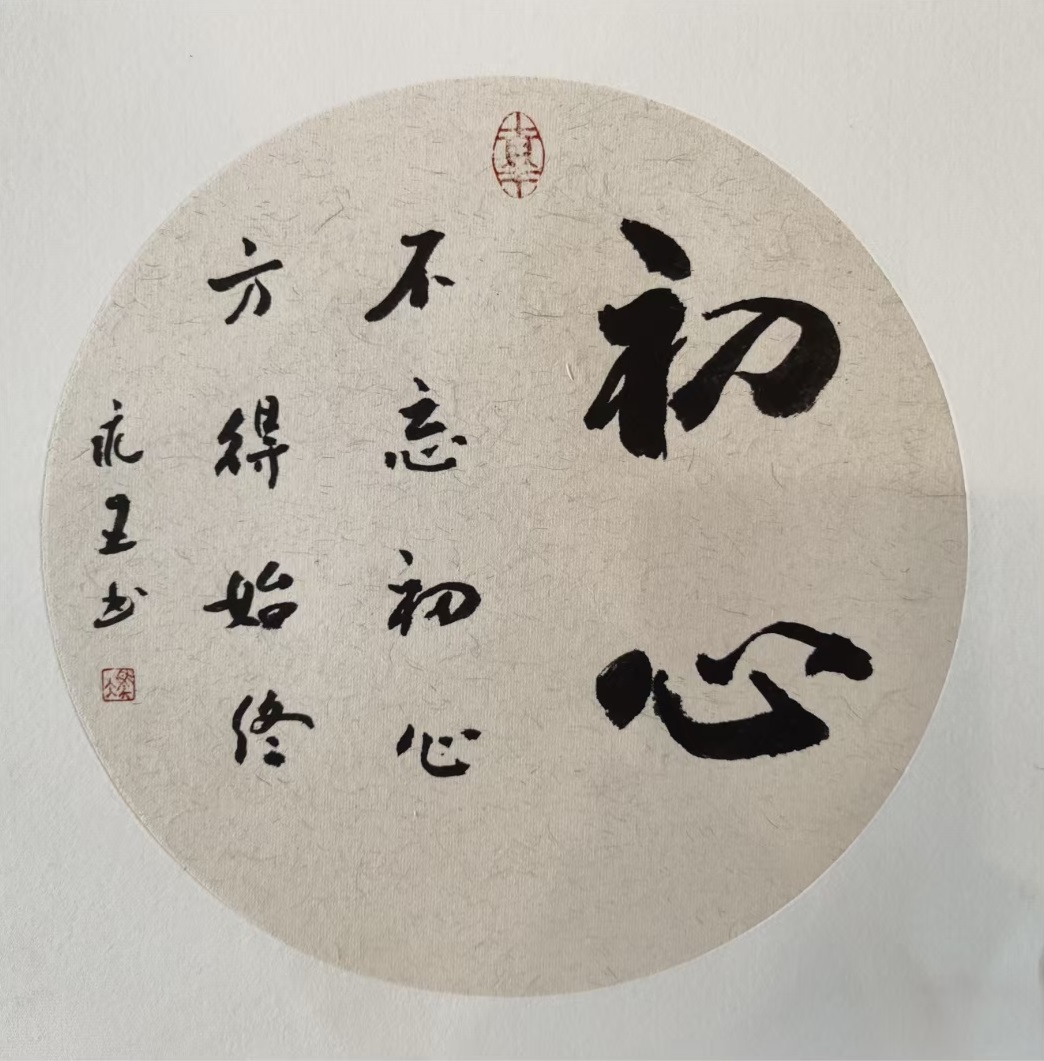 初心
不忘初心
方得始终
书